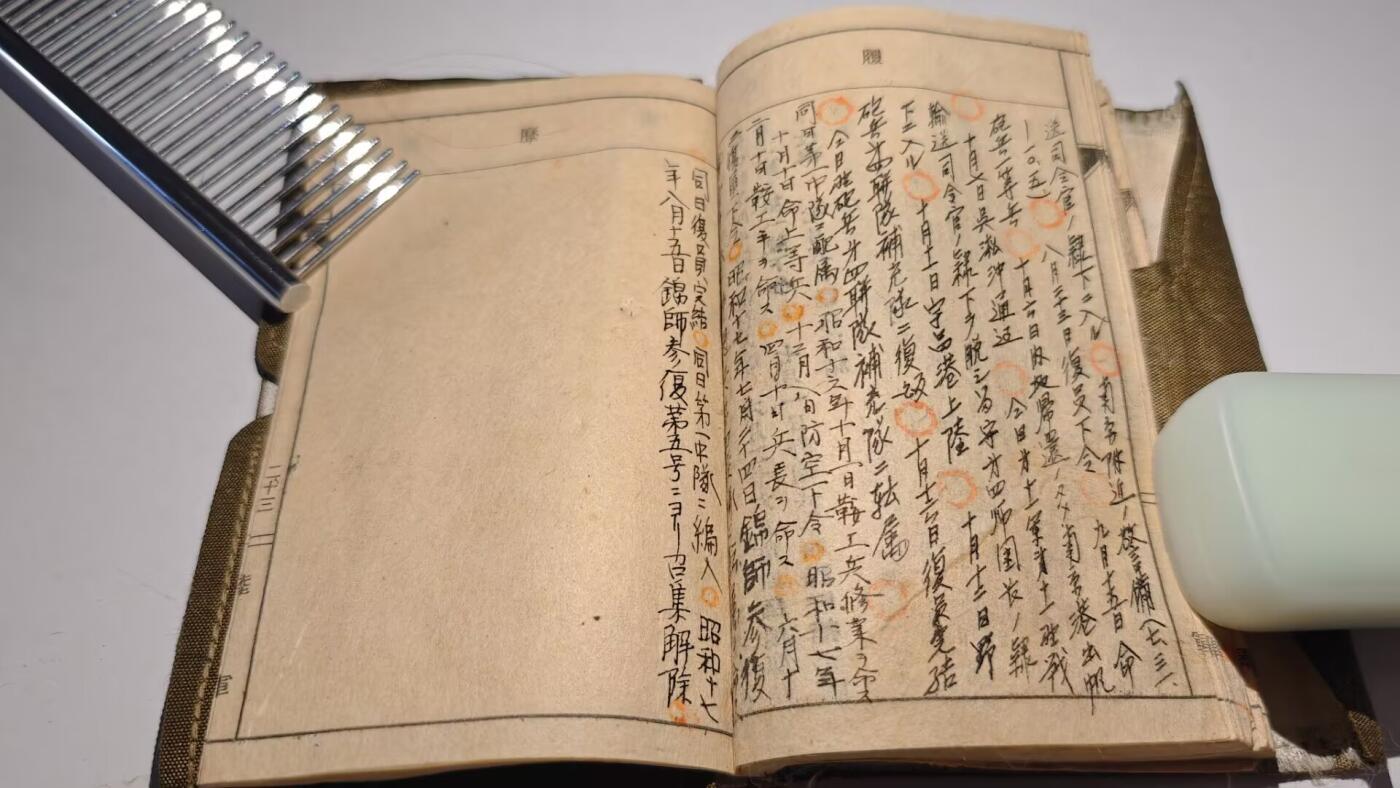 履
送司令官ノ隷下ニ入ル 南京附近ノ警備(七.三一
一一〇.五) 八月二十三日復員下令 九月十五日命
砲兵一等兵 十月六日内地帰還ノタメ南京港出帆
十月八日呉淞沖通过 今日第十一軍第十一砲戦
輸送司令官ノ隷下ヲ脱シ留守第四師団長ノ隷
下ニ入ル 十月十一日宇品港上陸 十月十二日野
砲兵第四聯隊補充隊ニ復皈 十月十六日復員完結
今日砲兵第四聯隊補充隊ニ転属
同日第一中隊ニ配属 昭和十六年十月一日鞍工兵修業ヲ命ス
十月十日命上等兵 十二月八日防空下令 昭和十七年
月十日鞍工手ヲ命ス 四月十日兵長ヲ命ス 六月十
復員下令 昭和十七年七月二十四日錦師参復
歴
同日復員完結 同日第一中隊ニ編入 昭和十七
年八月十五日錦師参復第五号ニヨリ召集解除
二十三
陸
軍